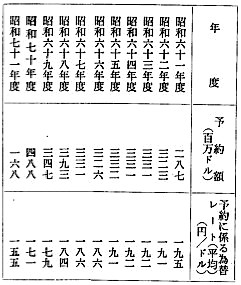 年度 予約額(百万ドル) 予約に係る為替レート(平均)(円/ドル)
昭和六十一年度 二八七 一九五
昭和六十二年度 一九一
昭和六十三年度 一九一
昭和六十四年度 一九一
昭和六十五年度 一九一
昭和六十六年度 三二六 一八六
昭和六十七年度 三三九 一八六
昭和六十八年度 三九三 一八四
昭和六十九年度 三四七 一七九
昭和七十年度 四八八 一七一
昭和七十一年度 一六八 一五五